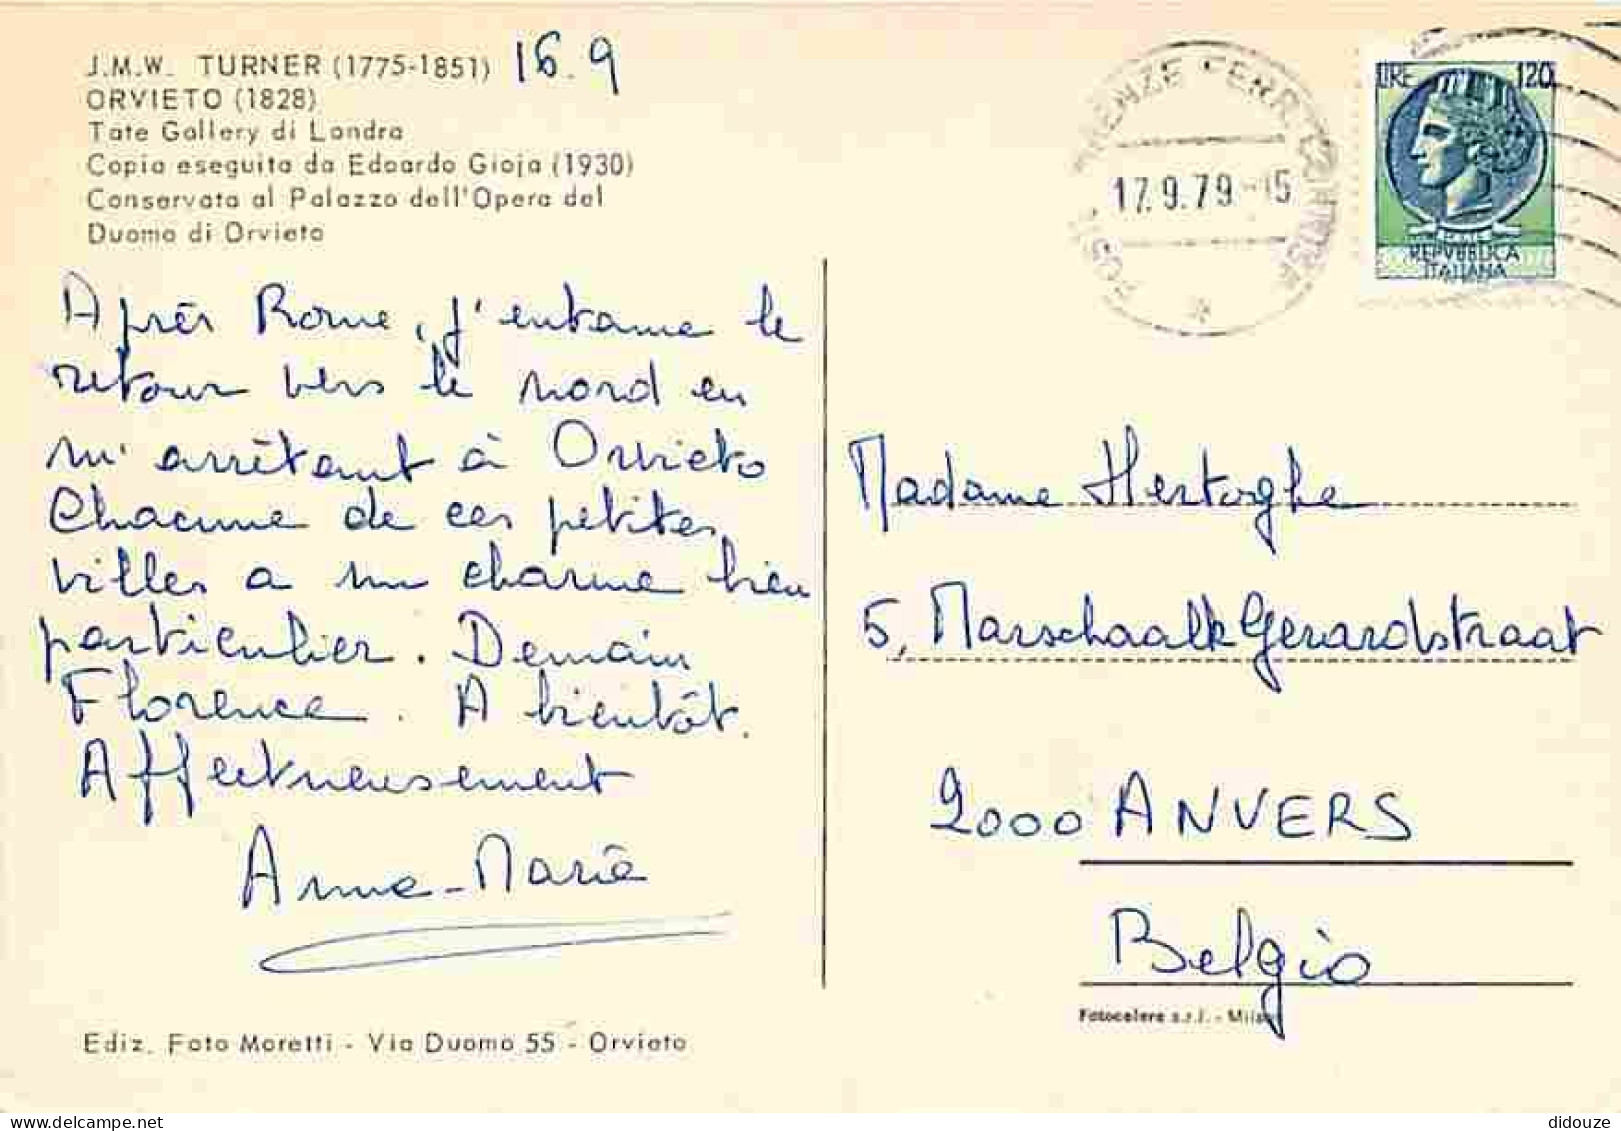 J.M.W. TURNER (1775-1851) 16.9
ORVIETO (1828)
Tate Gallery di Londra
Copia eseguita da Edoardo Gioja (1930)
Conservata al Palazzo dell'Opera del
Duomo di Orvieto
Après Rome, j'entame le
retour vers le nord en
m'arrêtant à Orvieto
Chacune de ces petites
villes a un charme bien
particulier. Demain
Florence. A bientôt.
Affectueusement
Anne-Marie
Ediz. Foto Moretti - Via Duomo 55 - Orvieto
17.9.79-15
LIRE 120
REPVBBLICA
ITALIANA
Madame Hertoghe
5, Marschaalk Gerardstraat
2000 ANVERS
Belgio
Fotocelere s.r.l. - Milano
didouze